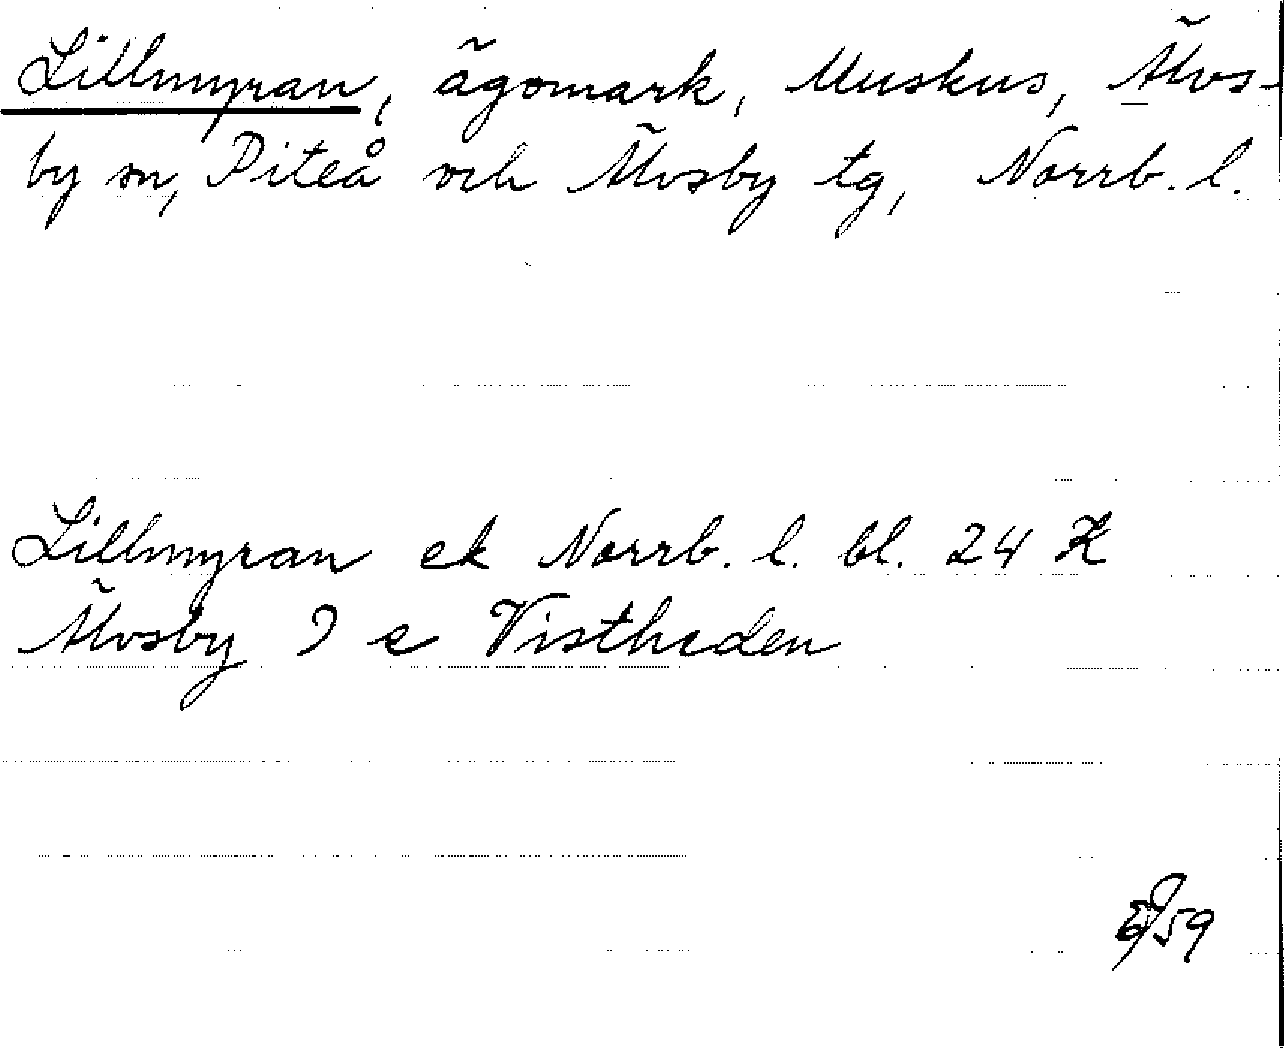 Lillmyran, ägomark, Muskus, Älvs-
by sn, Piteå och Älvsby tg, Norrb. l.
Lillmyran ek Norrb. l. bl. 24 K
Älvsby 9 e Vistheden
59